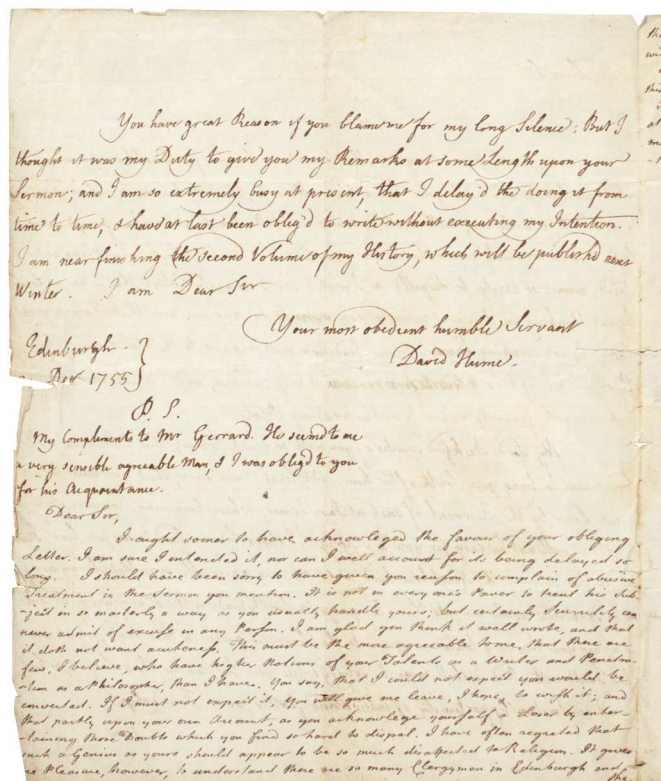 You have great Reason if you blame me for my long Silence: But I
thought it was my Duty to give you my Remarks at some Length upon your
Sermon; and I am so extremely busy at present, that I delay'd the doing it from
time to time, & have at last been oblig'd to write without executing my Intention.
I am near finishing the second Volume of my History, which will be publishd next
Winter. I am Dear Sir
Your most obedient humble Servant
David Hume.
Edinburgh
1755
P. S.
My Compliments to Mr Gerrard. He seemd to me
a very sensible agreeable Man, & I was obligd to you
for his Acquaintance.
Dear Sir,
I ought sooner to have acknowleged the favour of your obliging
Letter. I am sure I intended it, nor can I well account for its being delayed so
long. I should have been sorry to have given you reason to complain of abusive
Treatment in the Sermon you mention. It is not in every one's Power to treat his Sub-
-ject in so masterly a way as you usually handle yours; but certainly Scurrility can
never admit of excuse in any Person. I am glad you think it wall wrote, and that
it doth not want acuteness. This must be the more agreeable to me, that there are
few, I believe, who have higher Notions of your Talents as a Writer and Penetra-
-tion as a Philosopher, than I have. You say, that I could not expect you would be
converted. If I must not expect it, you will give me leave, I hope, to wish it; and
that partly upon your own Account, as you acknowlege yourself a Loser by enter-
-taining those Doubts which you find so hard to dispel. I have often regreted that
such a Genius as yours should appear to be so much disaffected to Religion. It gives
me Pleasure, however, to understand there are so many Clergymen in Edinburgh and
the